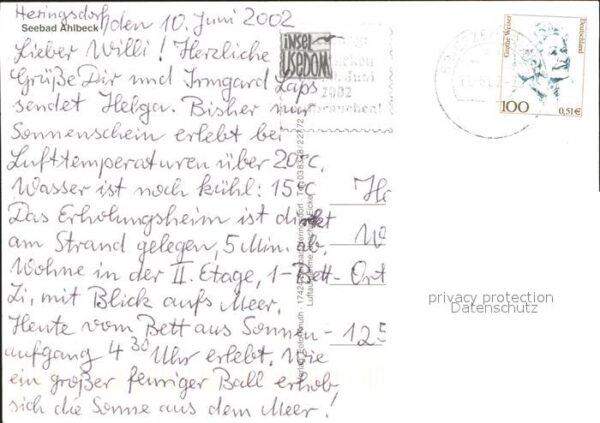 Heringsdorf, den 10. Juni 2002
Seebad Ahlbeck
Lieber Willi! Herzliche
Grüße Dir und Irmgard Laps
sendet Helga. Bisher nur
Sonnenschein erlebt bei
Lufttemperaturen über 20°C.
Wasser ist noch kühl: 15°C
Das Erholungsheim ist direkt
am Strand gelegen, 5 Min. ab.
Wohne in der II. Etage, 1-Bett-
Zi, mit Blick aufs Meer.
Heute vom Bett aus Sonnen-
aufgang 4 30 Uhr erlebt. Wie
ein großer feuriger Ball erhob
sich die Sonne aus dem Meer!
insel
USEDOM
Juni
2002
Grethe Weiser
Deutschland
100
0,51€
Ort
125
privacy protection
Datenschutz